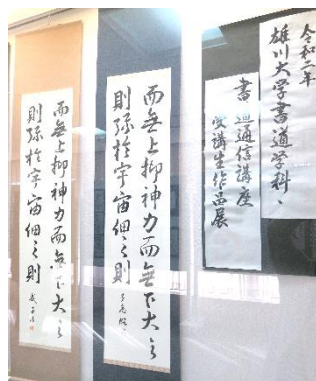 令和二年
雄川大学書道学科、
書道通信講座
受講生作品展
而無上抑神力而無下大之
則弥於宇宙細之則
而無上抑神力而無下大之
則弥於宇宙細之則